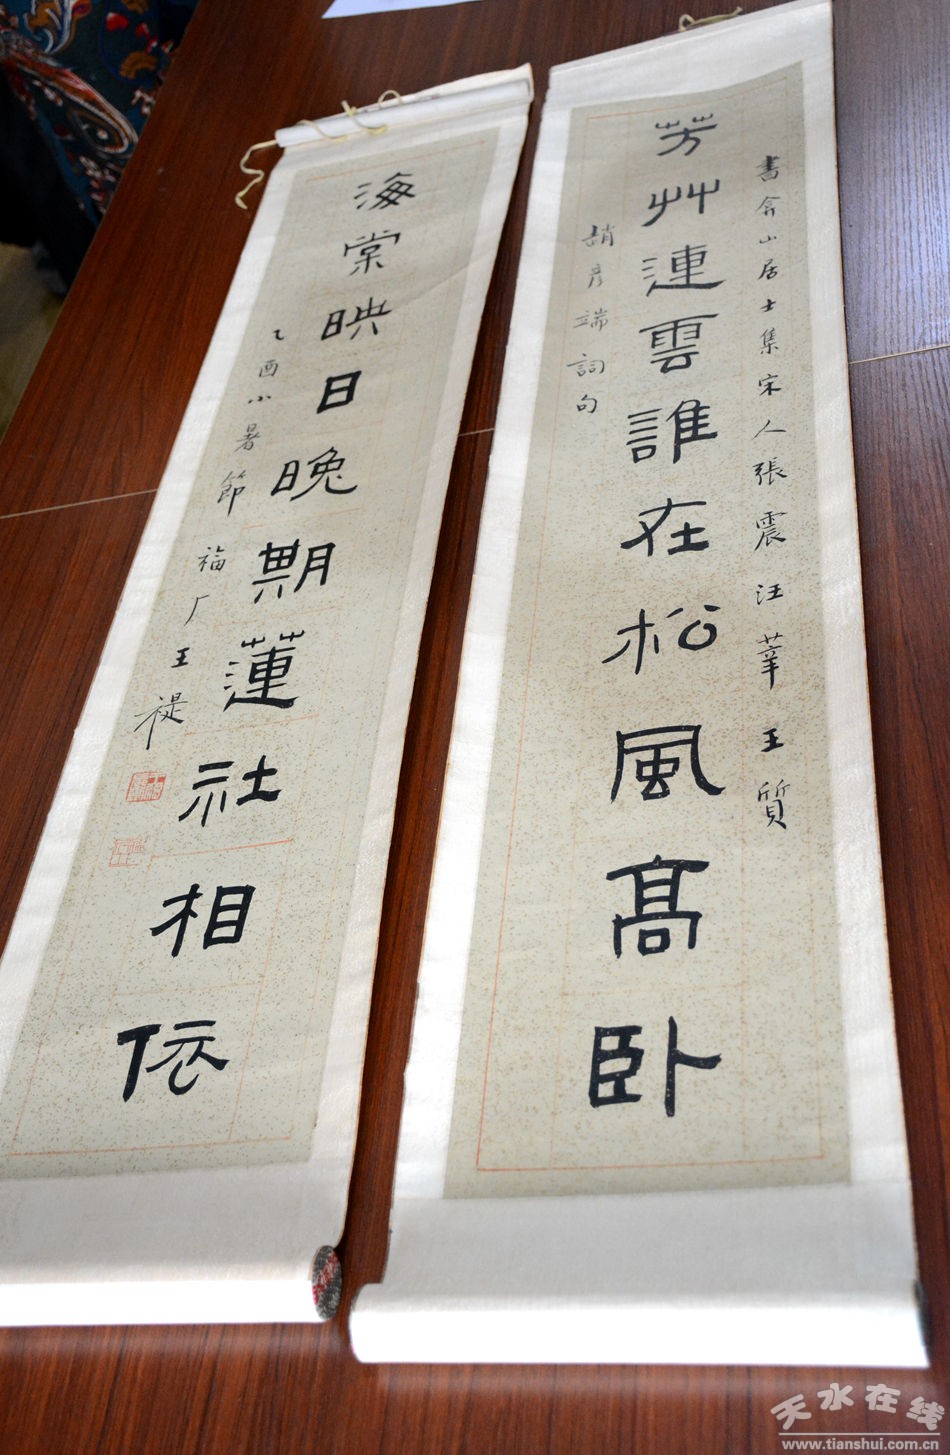 芳艸連雲誰在松風高卧
書舍山居士集宋人張震汪莘王質
趙彦端詞句
海棠映日晚期蓮社相依
乙酉小暑節福厂王禔
天水在线
www.tianshui.com.cn